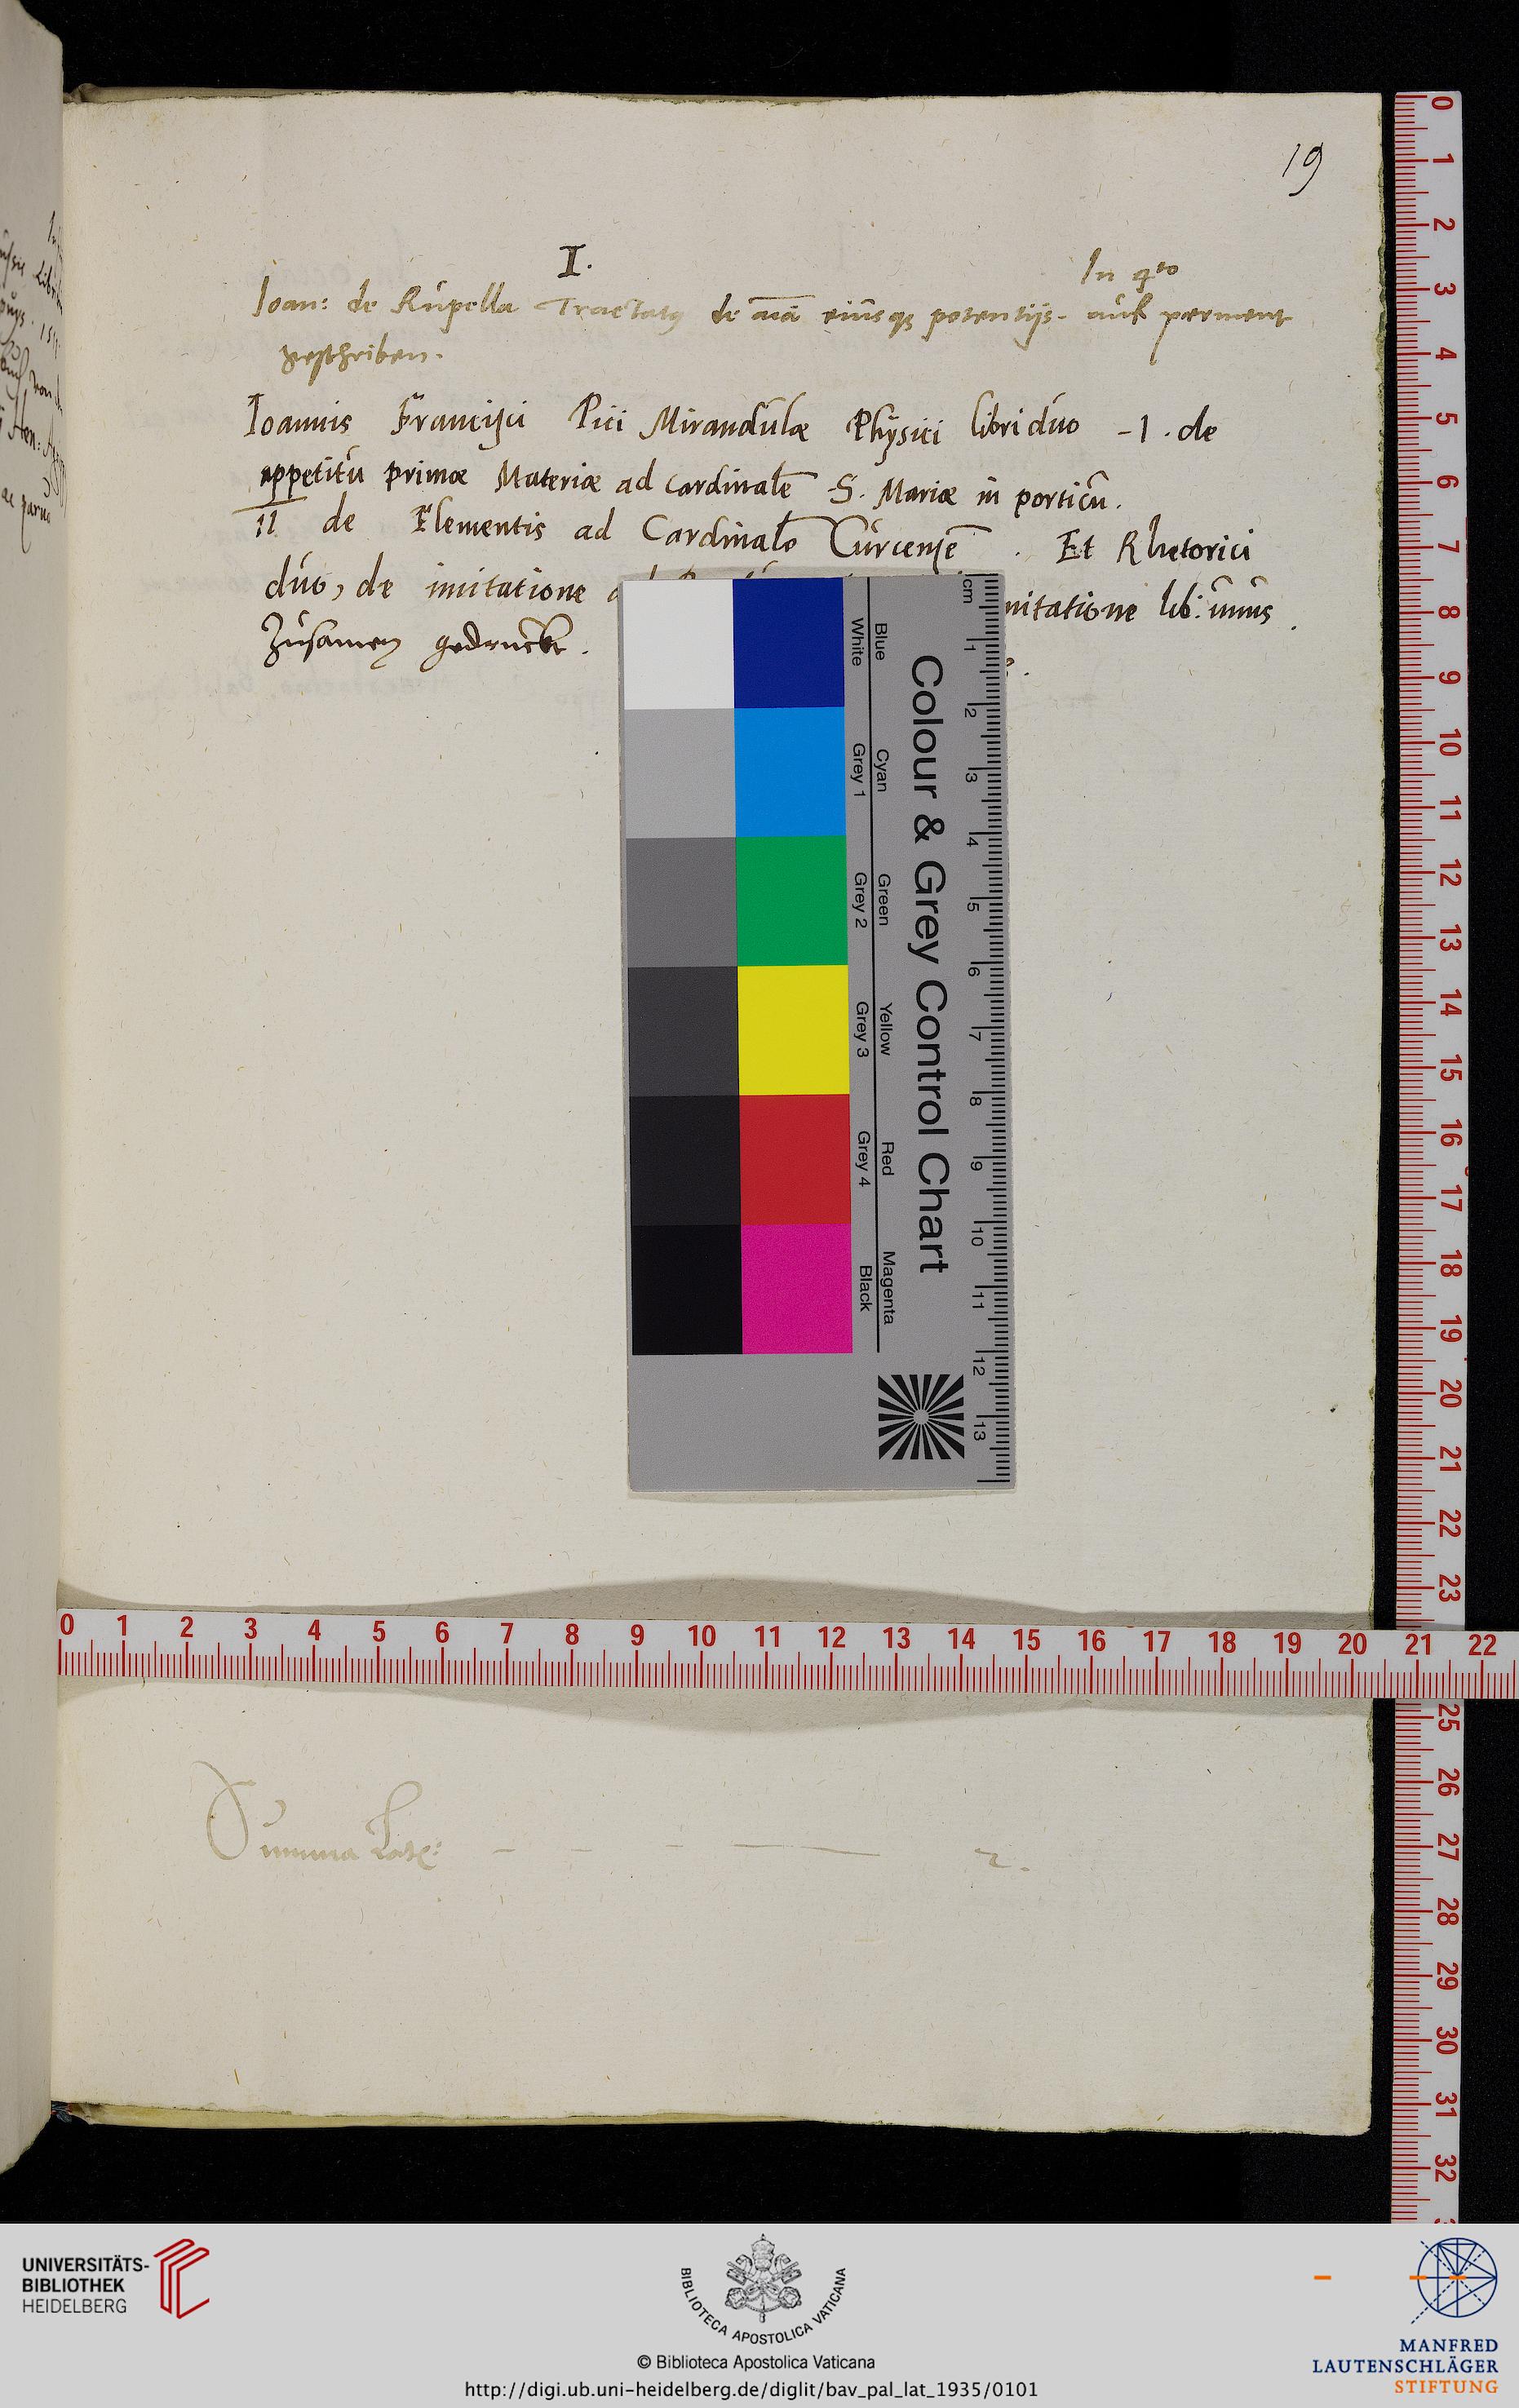 19
I.
In qto
Ioan: de Rupella Tractatus de aīa eiusq; potentijs. auf perment
geschriben.
Ioannis Francisci Pici Mirandulæ Physici libri duo - 1. de
appetitu primæ Materiæ ad cardinalē S. Mariæ in porticu.
II de Elementis ad Cardinalē Curcensē. Et Rhetorici
duo, de imitatione mitatione lib: unus.
Zusamen gedruckt.
Summa Late: - - - — 2.
Colour & Grey Control Chart
Blue Cyan Green Yellow Red Magenta
White Grey 1 Grey 2 Grey 3 Grey 4 Black
cm 1 2 3 4 5 6 7 8 9 10 11 12 13
0 1 2 3 4 5 6 7 8 9 10 11 12 13 14 15 16 17 18 19 20 21 22 23 25 26 27 28 29 30 31 32
0 1 2 3 4 5 6 7 8 9 10 11 12 13 14 15 16 17 18 19 20 21 22
UNIVERSITÄTS-
BIBLIOTHEK
HEIDELBERG
BIBLIOTECA APOSTOLICA VATICANA
© Biblioteca Apostolica Vaticana
http://digi.ub.uni-heidelberg.de/diglit/bav_pal_lat_1935/0101
MANFRED
LAUTENSCHLÄGER
STIFTUNG